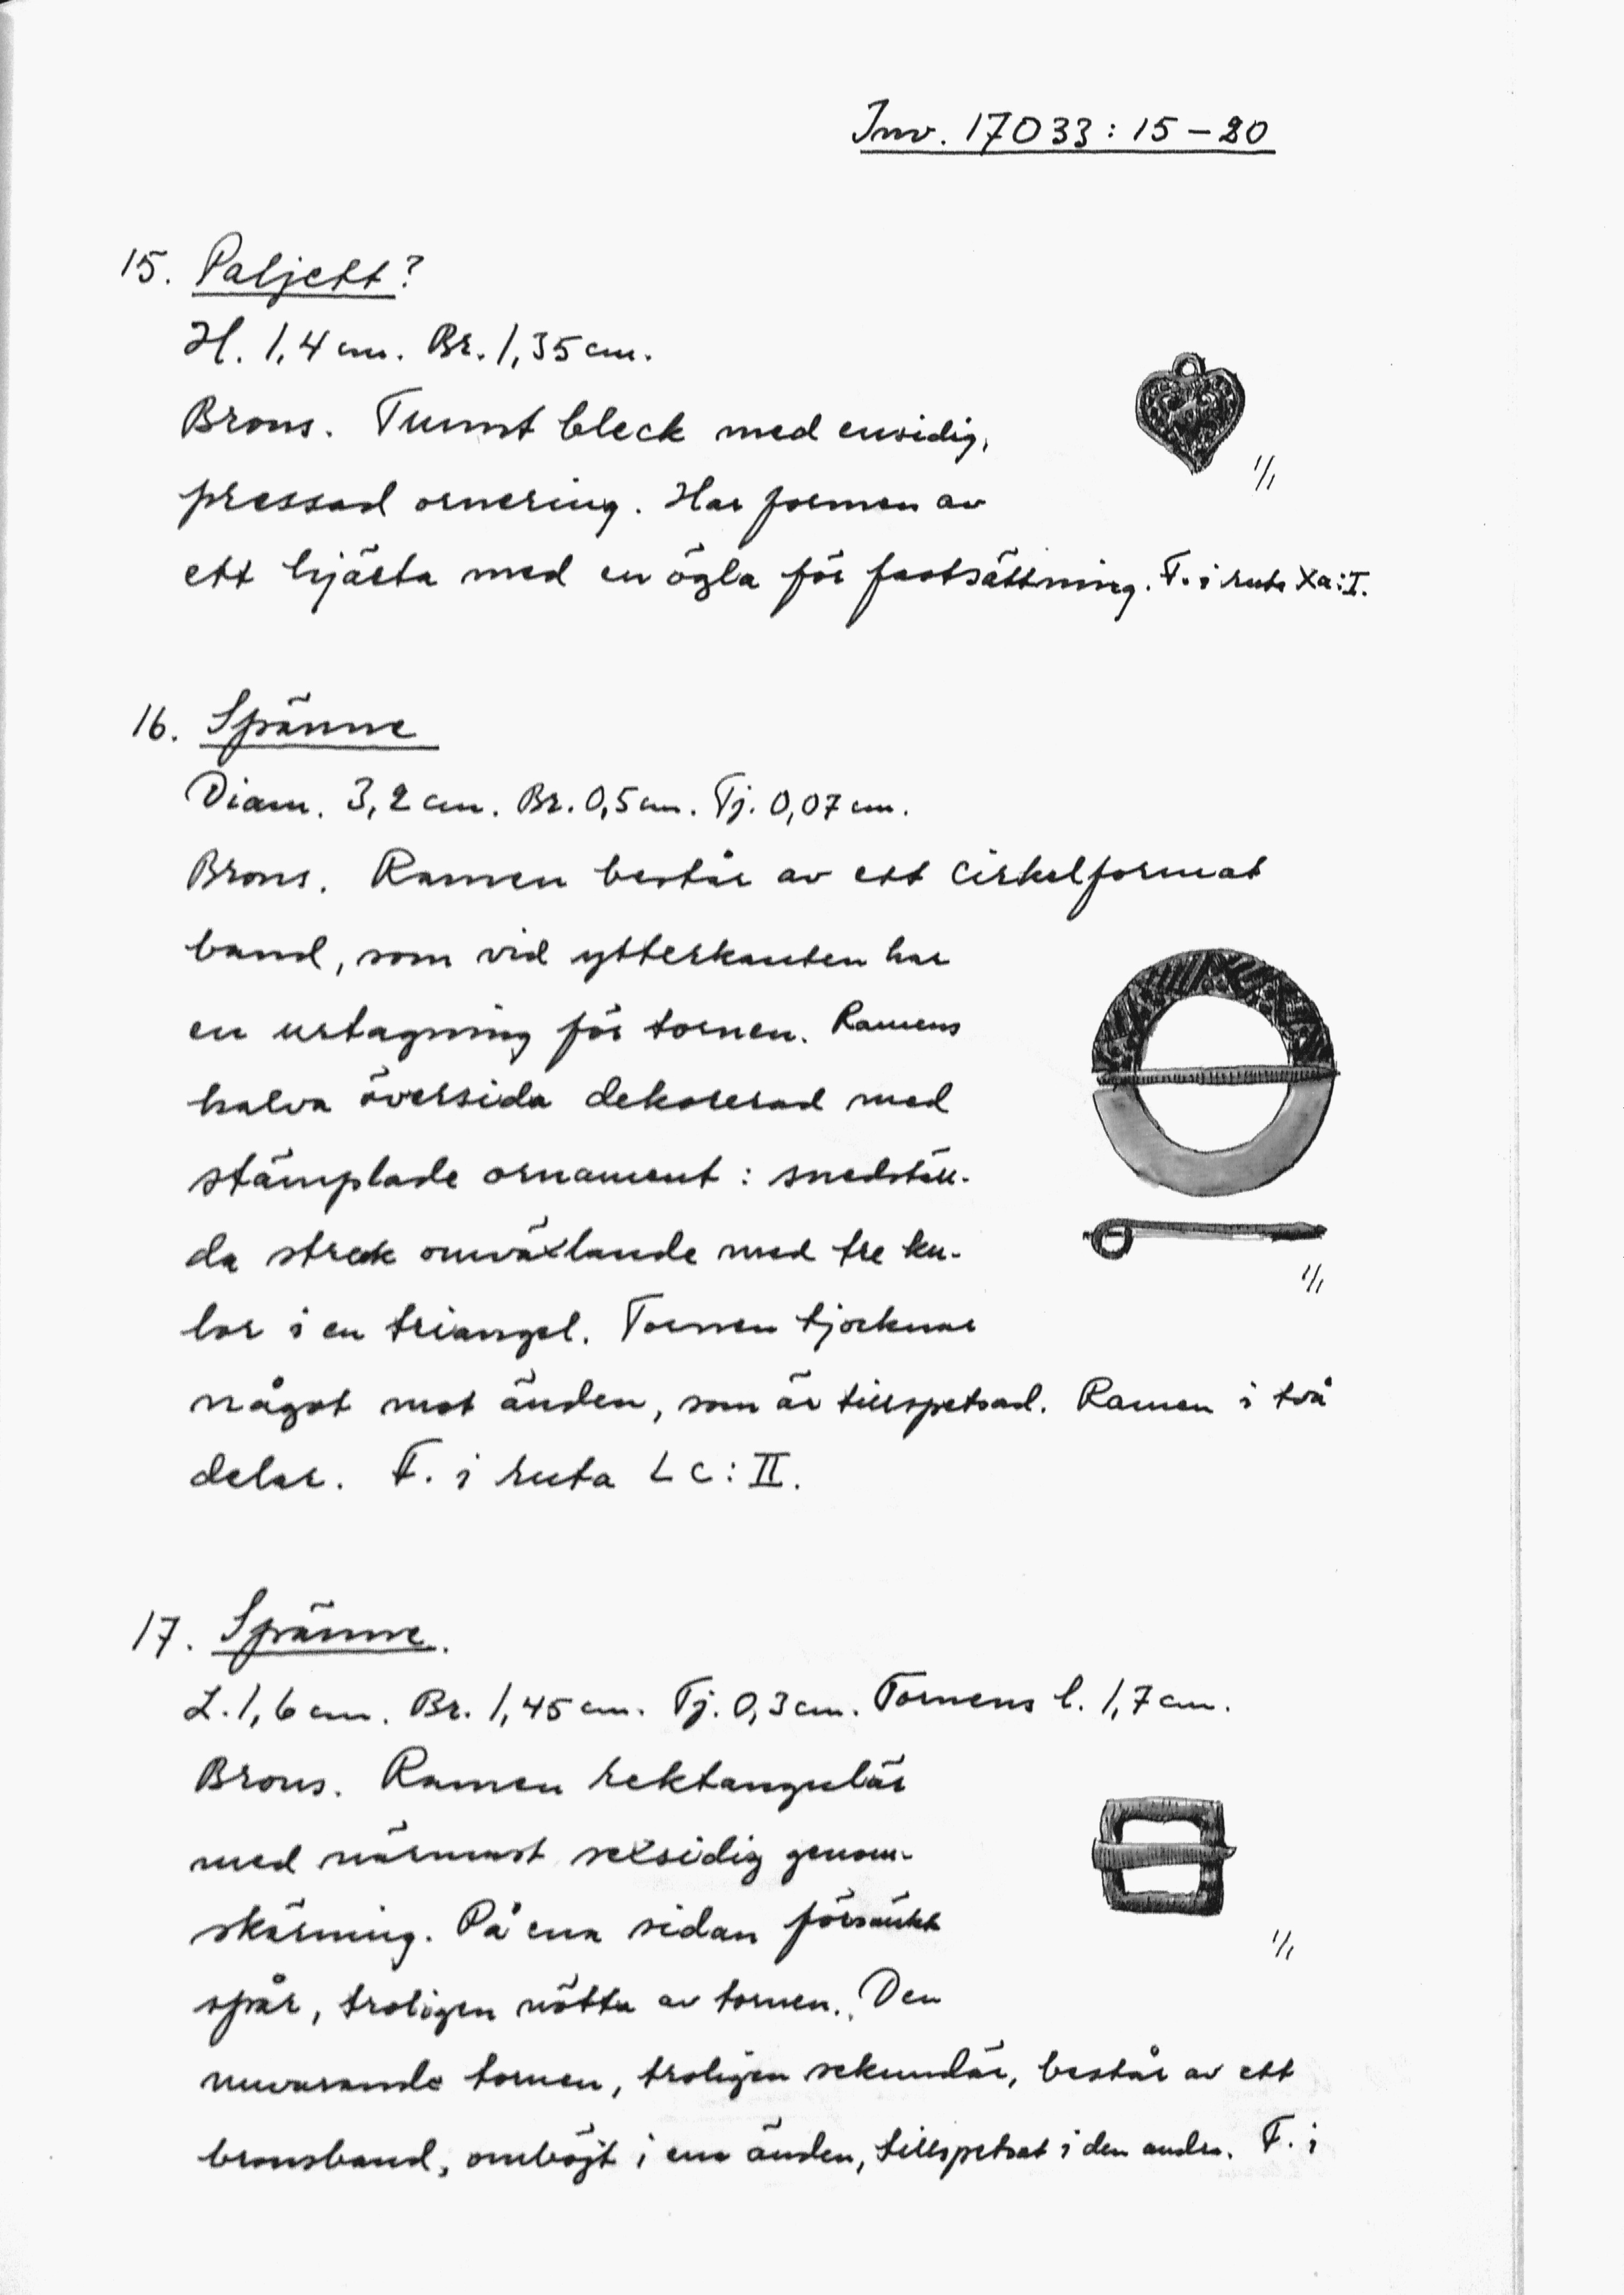 Inv. 17033:15-20
15. Paljett?
H. 1,4 cm. Br. 1,35 cm.
Brons. Tunnt bleck med ensidig,
pressad ornering. Har formen av
1/1
ett hjärta med en ögla för fastsättning. F. i ruta Xa:I.
16. Spänne
Diam. 3,2 cm. Br. 0,5 cm. Tj. 0,07 cm.
Brons. Ramen består av ett cirkelformat
band, som vid ytterkanten har
en urtagning för tornen. Ramens
halva översida dekorerad med
stämplade ornament: snedställ-
da streck omväxlande med tre ku-
1/1
lor i en triangel. Tornen tjocknar
något mot änden, som är tillspetsad. Ramen i två
delar. F. i ruta Lc:II.
17. Spänne.
L. 1,6 cm. Br. 1,45 cm. Tj. 0,3 cm. Tornens l. 1,7 cm.
Brons. Ramen rektangulär
med närmast sexsidig genom-
skärning. På ena sidan försänkt
1/1
spår, troligen nötta av tornen. Den
nuvarande tornen, troligen sekundär, består av ett
bronsband, omböjt i ena änden, tillspetsat i den andra. F. i